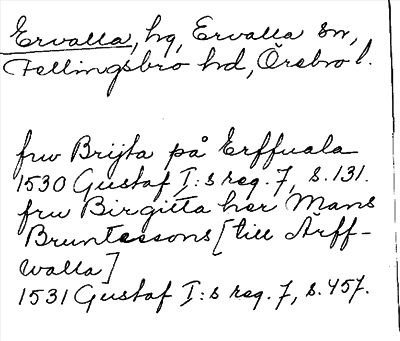 Ervalla, hg, Ervalla sn,
Fellingsbro hd, Örebro l.
fru Brijta på Erffuala
1530 Gustaf I:s reg. 7, s. 131.
fru Birgitta her Måns
Bruntessons [till Ärff-
walla]
1531 Gustaf I:s reg. 7, s. 457.